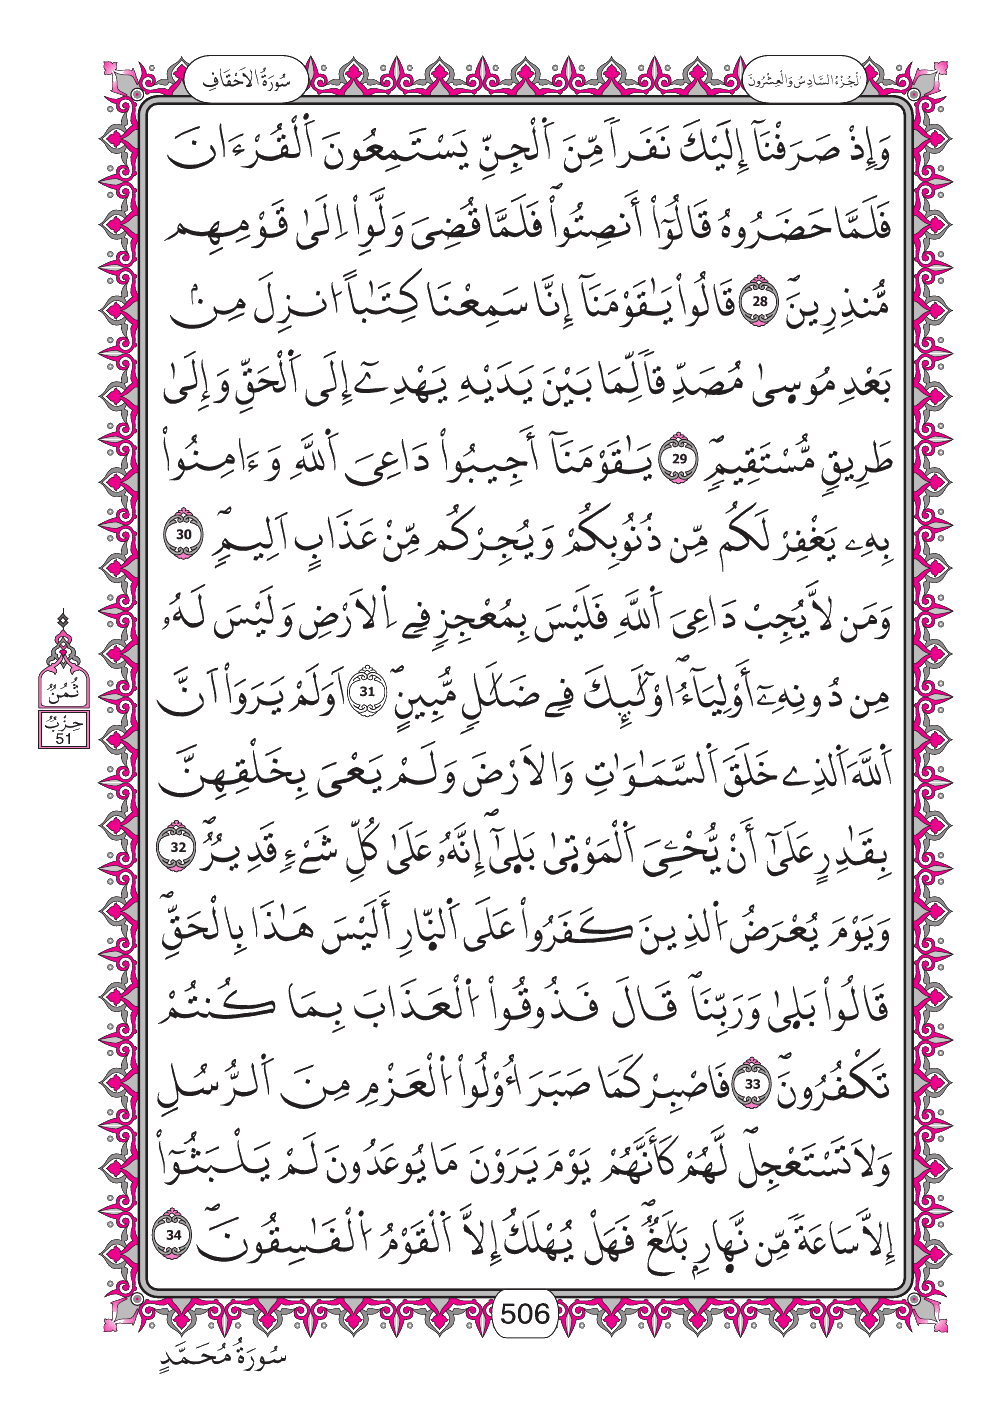 سُورَةُ الاَحْقَافِ
اَلْجُزْءُ السَّادِسُ وَالْعِشْرُونَ
وَإِذْ صَرَفْنَآ إِلَيْكَ نَفَراٗ مِّنَ اَ۬لْجِنِّ يَسْتَمِعُونَ اَ۬لْقُرْءَانَ
فَلَمَّا حَضَرُوهُ قَالُوٓاْ أَنصِتُواْۖ فَلَمَّا قُضِيَ وَلَّوِاْ اِلَىٰ قَوْمِهِم
مُّنذِرِينَۖ 28 قَالُواْ يَٰقَوْمَنَآ إِنَّا سَمِعْنَا كِتَٰباً ا۟نزِلَ مِنۢ
بَعْدِ مُوس۪ىٰ مُصَدِّقاٗ لِّمَا بَيْنَ يَدَيْهِ يَهْدِےٓ إِلَى اَ۬لْحَقِّ وَإِلَىٰ
طَرِيقٖ مُّسْتَقِيمٖۖ 29 يَٰقَوْمَنَآ أَجِيبُواْ دَاعِيَ اَ۬للَّهِ وَءَامِنُواْ
بِهِۦ يَغْفِرْ لَكُم مِّن ذُنُوبِكُمْ وَيُجِرْكُم مِّنْ عَذَابٍ اَلِيمٖۖ 30
وَمَن لَّا يُجِبْ دَاعِيَ اَ۬للَّهِ فَلَيْسَ بِمُعْجِزٖ فِے اِ۬لَارْضِ وَلَيْسَ لَهُۥ
مِن دُونِهِۦٓ أَوْلِيَآءُۖ ا۟وْلَٰٓئِكَ فِے ضَلَٰلٖ مُّبِينٍۖ 31 اَوَلَمْ يَرَوَاْ اَنَّ
اَ۬للَّهَ اَ۬لذِے خَلَقَ اَ۬لسَّمَٰوَٰتِ وَالَارْضَ وَلَمْ يَعْيَ بِخَلْقِهِنَّ
بِقَٰدِرٍ عَلَىٰٓ أَنْ يُّحْۦِيَ اَ۬لْمَوْت۪ىٰ بَل۪ىٰٓۖ إِنَّهُۥ عَلَىٰ كُلِّ شَےْءٖ قَدِيرٞۖ 32
وَيَوْمَ يُعْرَضُ اُ۬لذِينَ كَفَرُواْ عَلَى اَ۬لنّ۪ارِ أَلَيْسَ هَٰذَا بِالْحَقِّۖ
قَالُواْ بَل۪ىٰ وَرَبِّنَاۖ قَالَ فَذُوقُواْ اُ۬لْعَذَابَ بِمَا كُنتُمْ
تَكْفُرُونَۖ 33 فَاصْبِرْ كَمَا صَبَرَ أُوْلُواْ اُ۬لْعَزْمِ مِنَ اَ۬لرُّسُلِ
وَلَا تَسْتَعْجِل لَّهُمْۖ كَأَنَّهُمْ يَوْمَ يَرَوْنَ مَا يُوعَدُونَ لَمْ يَلْبَثُوٓاْ
إِلَّا سَاعَةٗ مِّن نَّه۪ارِۢ بَلَٰغٞۖ فَهَلْ يُهْلَكُ إِلَّا اَ۬لْقَوْمُ اُ۬لْفَٰسِقُونَۖ 34
ثُمُنٌ
حِزْبٌ
51
506
سُورَةُ مُحَمَّدٍ